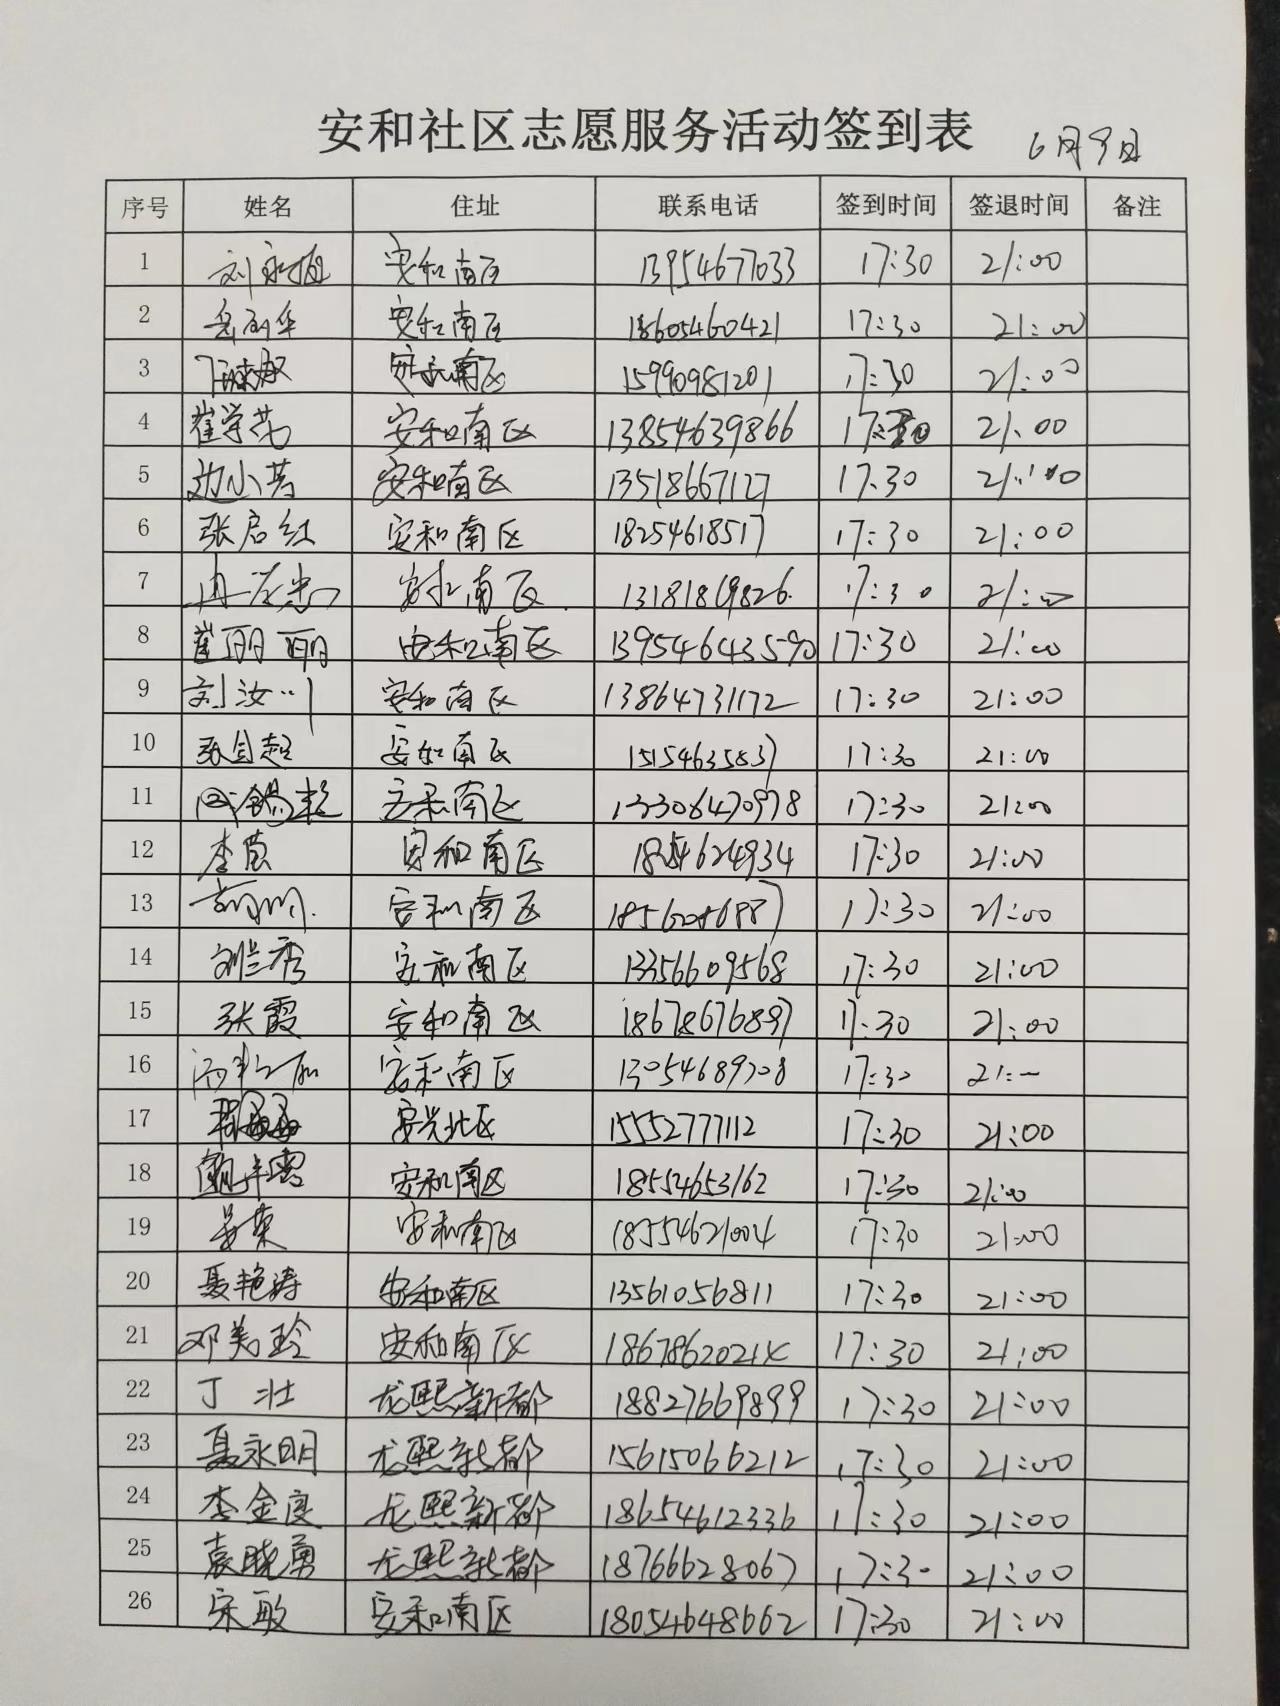 安和社区志愿服务活动签到表 6月9日
序号 姓名 住址 联系电话 签到时间 签退时间 备注
1 安和南区 13954677033 17:30 21:00
2 岳丽华 安和南区 18605460421 17:30 21:00
3 安和南区 15990981201 17:30 21:00
4 崔学花 安和南区 13854639866 17:30 21:00
5 边小芳 安和南区 13518667127 17:30 21:00
6 张启红 安和南区 18254618517 17:30 21:00
7 安和南区 13181869826 17:30 21:00
8 崔丽丽 安和南区 13954643590 17:30 21:00
9 刘汝川 安和南区 13864731172 17:30 21:00
10 张金超 安和南区 15154635837 17:30 21:00
11 安和南区 13306470978 17:30 21:00
12 李英 安和南区 17:30 21:00
13 安和南区 17:30 21:00
14 刘兰秀 安和南区 13356609568 17:30 21:00
15 张霞 安和南区 18678676897 17:30 21:00
16 安和南区 13054689708 17:30 21:00
17 安兴北区 15552777112 17:30 21:00
18 安和南区 18554653162 17:30 21:00
19 吴荣 安和南区 18554621004 17:30 21:00
20 聂艳涛 安和南区 13561056811 17:30 21:00
21 邓美玲 安和南区 17:30 21:00
22 丁壮 龙熙新都 18827669899 17:30 21:00
23 聂永明 龙熙新都 15615066212 17:30 21:00
24 李金度 龙熙新都 18654612336 17:30 21:00
25 袁晓勇 龙熙新都 18766628067 17:30 21:00
26 宋敏 安和南区 18054648662 17:30 21:00